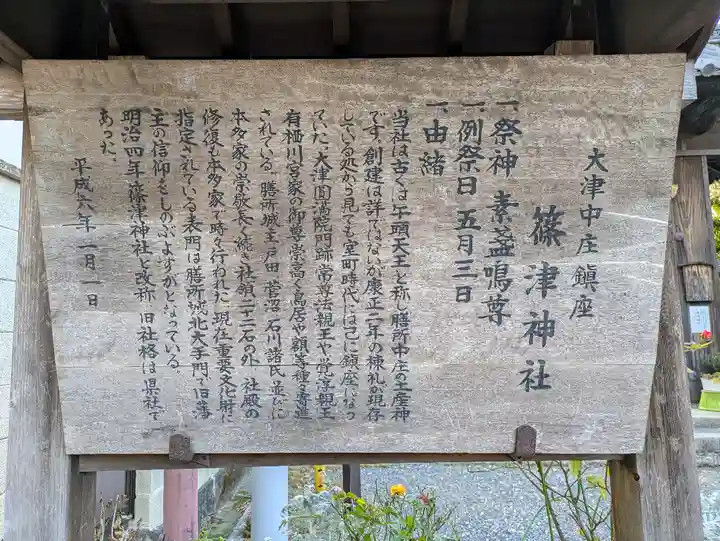 大津中庄鎮座
篠津神社
一、祭神 素盞鳴尊
一、例祭日 五月三日
一、由緒
当社は古くは牛頭天王と称し膳所中庄の土産神
です。創建は詳ではないが康正二年の棟札が現存
している処から見ても室町時代にはここに鎮座になっ
ていた。大津円満院門跡常尊法親王や覚淳親王
有栖川宮家の御尊崇高く鳥居や額等種々寄進
されている。膳所城主戸田 菅沼 石川諸氏並びに
本多家の崇敬長く続き社領二十二石の外 社殿の
修復も本多家で時々行われた。現在重要文化財に
指定されている表門は膳所城北大手門で旧藩
主の信仰をしのぶよすがとなっている。
明治四年篠津神社と改称 旧社格は県社で
あった。
平成六年一月一日